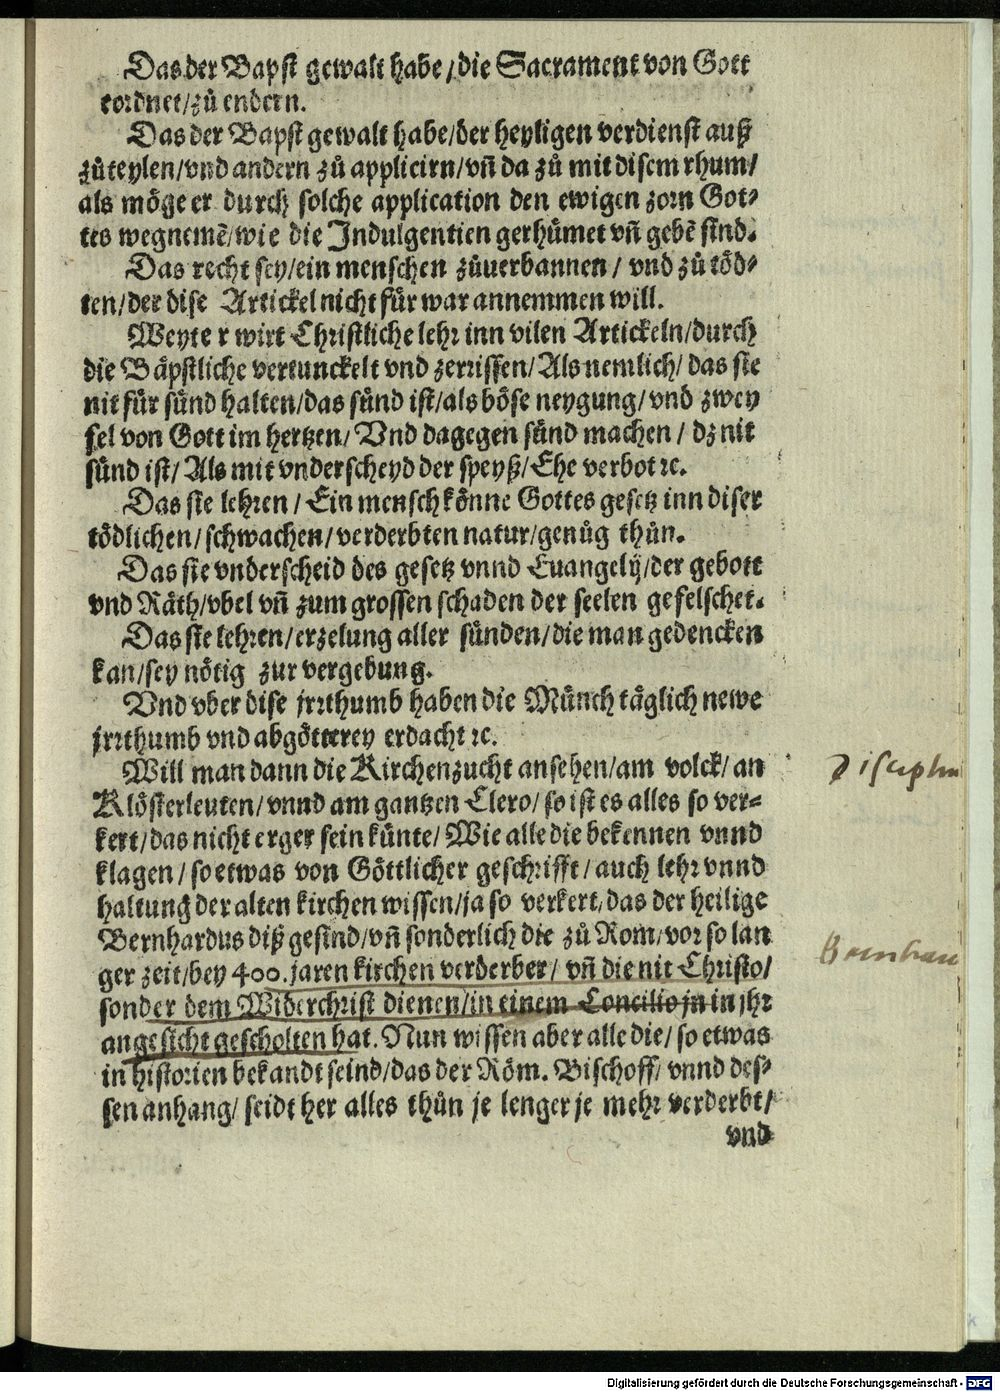 Das der Bapst gewalt habe/die Sacrament von Gott
eordnet/zů endern.
Das der Bapst gewalt habe/der heyligen verdienst auß
zůteylen/vnd andern zů applicirn/vñ da zů mit disem rhum/
als möge er durch solche application den ewigen zorn Got⸗
tes wegnemẽ/wie die Indulgentien gerhümet vñ gebẽ sind.
Das recht sey/ein menschen zůuerbannen / vnd zů töd⸗
ten/der dise Artickel nicht für war annemmen will.
Weyte r wirt Christliche lehr inn vilen Artickeln/durch
die Bäpstliche vertunckelt vnd zerrissen/Als nemlich/ das sie
nit für sünd halten/das sünd ist/als böse neygung/vnd zwey
fel von Gott im hertzen/ Vnd dagegen sünd machen / dz nit
sünd ist/ Als mit vnderscheyd der speyß/Ehe verbot ꝛc.
Das sie lehren / Ein mensch könne Gottes gesetz inn diser
tödlichen/schwachen/verderbten natur/genůg thůn.
Das sie vnderscheid des gesetz vnnd Euangelij/der gebott
vnd Räth/vbel vñ zum grossen schaden der seelen gefelschet.
Das sie lehren/erzelung aller sünden/die man gedencken
kan/sey nötig zur vergebung.
Vnd vber dise jrrthumb haben die Münch täglich newe
jrrthumb vnd abgötterey erdacht ꝛc.
Will man dann die Kirchenzucht ansehen/am volck/ an
Klösterleuten/vnnd am gantzen Clero/so ist es alles so ver⸗
kert/das nicht erger sein künte/Wie alle die bekennen vnnd
klagen/so etwas von Göttlicher geschrifft/auch lehr vnnd
haltung der alten kirchen wissen/ja so verkert/das der heilige
Bernhardus diß gesind/vñ sonderlich die zů Rom/vor so lan
ger zeit/bey 400.jaren kirchen verderber/ vñ die nit Christo/
sonder dem Widerchrist dienen/in einem Concilio jn in jhr
angesicht gescholten hat. Nun wissen aber alle die/so etwas
in historien bekandt seind/das der Röm. Bischoff/ vnnd des⸗
sen anhang/ seidt her alles thůn je lenger je mehr verderbt/
vnd
Disciplin
Digitalisierung gefördert durch die Deutsche Forschungsgemeinschaft - DFG